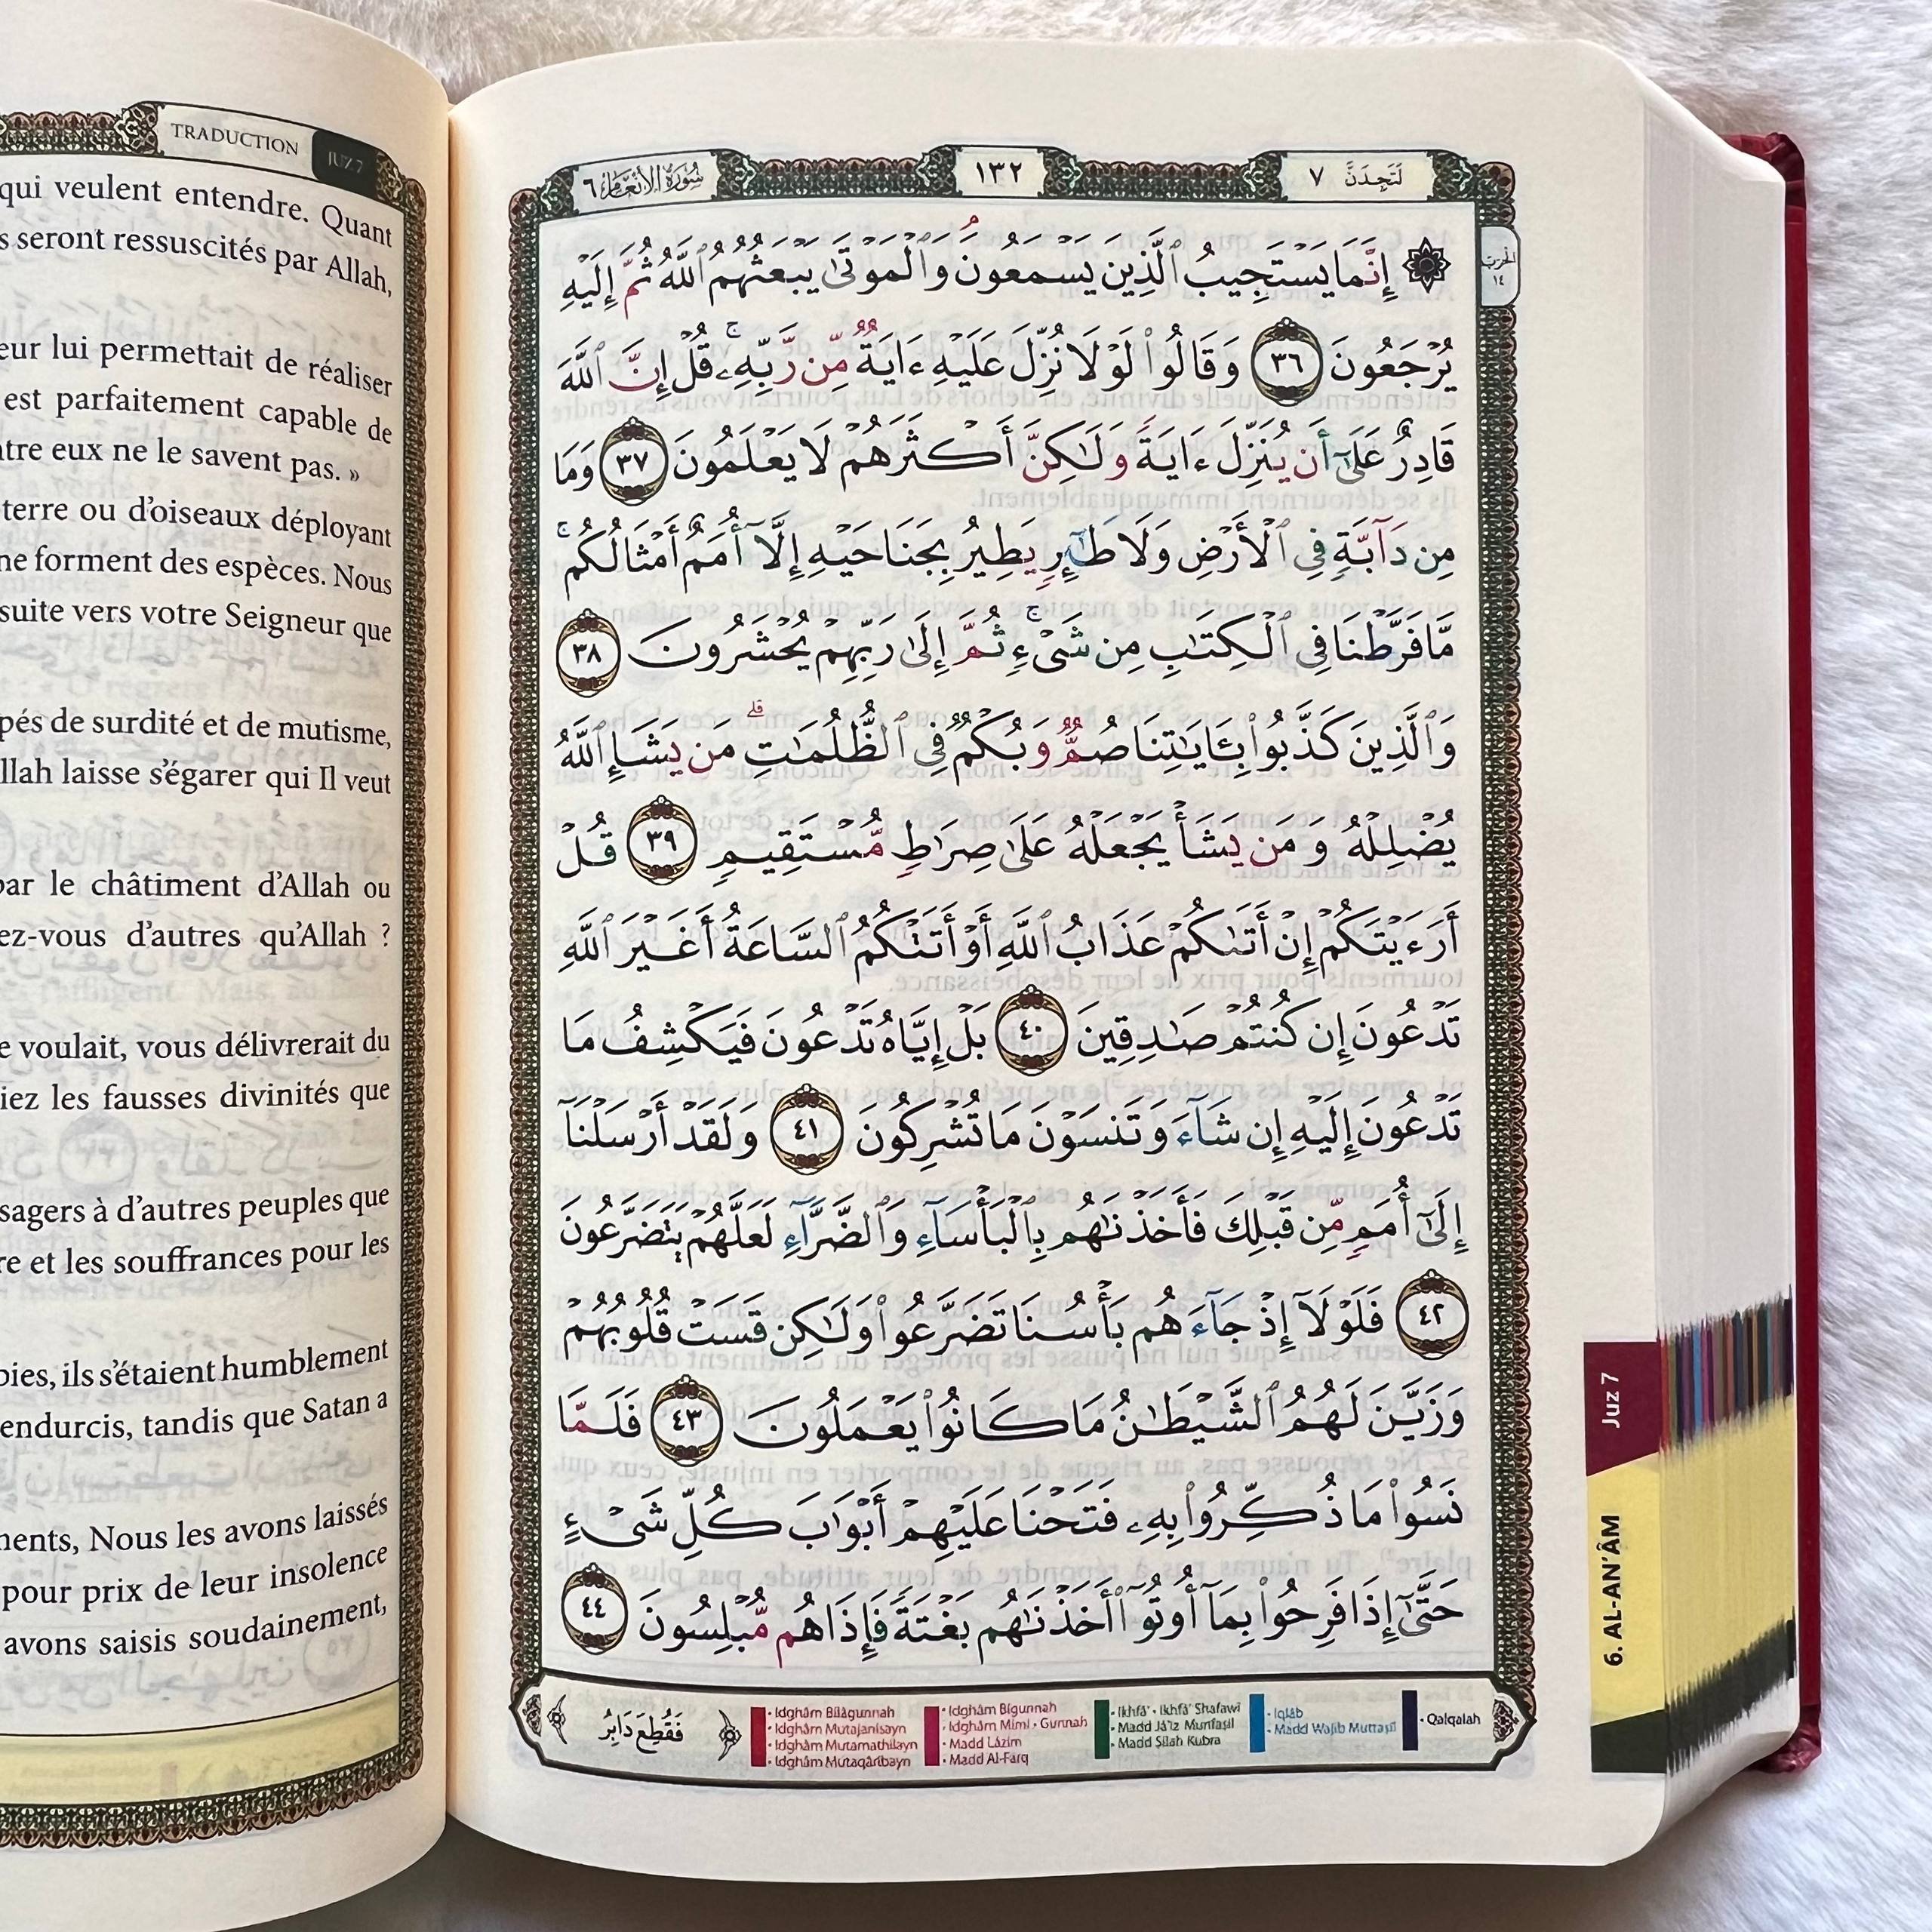 TRADUCTION
JUZ 7
qui veulent entendre. Quant
s seront ressuscités par Allah,
eur lui permettait de réaliser
est parfaitement capable de
ntre eux ne le savent pas. »
terre ou d'oiseaux déployant
ne forment des espèces. Nous
suite vers votre Seigneur que
pés de surdité et de mutisme,
llah laisse s'égarer qui Il veut
par le châtiment d'Allah ou
ez-vous d'autres qu'Allah ?
e voulait, vous délivrerait du
iez les fausses divinités que
sagers à d'autres peuples que
re et les souffrances pour les
bies, ils s'étaient humblement
endurcis, tandis que Satan a
ments, Nous les avons laissés
pour prix de leur insolence
avons saisis soudainement,
لَتَجِدَنَّ ٧
١٣٢
سُورَةُ الأَنْعَامِ ٦
الحزب
١٤
۞ إِنَّمَا يَسْتَجِيبُ ٱلَّذِينَ يَسْمَعُونَ ۘ وَٱلْمَوْتَىٰ يَبْعَثُهُمُ ٱللَّهُ ثُمَّ إِلَيْهِ
يُرْجَعُونَ ٣٦ وَقَالُوا۟ لَوْلَا نُزِّلَ عَلَيْهِ ءَايَةٌ مِّن رَّبِّهِۦ ۚ قُلْ إِنَّ ٱللَّهَ
قَادِرٌ عَلَىٰٓ أَن يُنَزِّلَ ءَايَةً وَلَٰكِنَّ أَكْثَرَهُمْ لَا يَعْلَمُونَ ٣٧ وَمَا
مِن دَآبَّةٍ فِى ٱلْأَرْضِ وَلَا طَٰٓئِرٍ يَطِيرُ بِجَنَاحَيْهِ إِلَّآ أُمَمٌ أَمْثَالُكُم ۚ
مَّا فَرَّطْنَا فِى ٱلْكِتَٰبِ مِن شَىْءٍ ۚ ثُمَّ إِلَىٰ رَبِّهِمْ يُحْشَرُونَ ٣٨
وَٱلَّذِينَ كَذَّبُوا۟ بِـَٔايَٰتِنَا صُمٌّ وَبُكْمٌ فِى ٱلظُّلُمَٰتِ ۗ مَن يَشَإِ ٱللَّهُ
يُضْلِلْهُ وَمَن يَشَأْ يَجْعَلْهُ عَلَىٰ صِرَٰطٍ مُّسْتَقِيمٍ ٣٩ قُلْ
أَرَءَيْتَكُمْ إِنْ أَتَىٰكُمْ عَذَابُ ٱللَّهِ أَوْ أَتَتْكُمُ ٱلسَّاعَةُ أَغَيْرَ ٱللَّهِ
تَدْعُونَ إِن كُنتُمْ صَٰدِقِينَ ٤٠ بَلْ إِيَّاهُ تَدْعُونَ فَيَكْشِفُ مَا
تَدْعُونَ إِلَيْهِ إِن شَآءَ وَتَنسَوْنَ مَا تُشْرِكُونَ ٤١ وَلَقَدْ أَرْسَلْنَآ
إِلَىٰٓ أُمَمٍ مِّن قَبْلِكَ فَأَخَذْنَٰهُم بِٱلْبَأْسَآءِ وَٱلضَّرَّآءِ لَعَلَّهُمْ يَتَضَرَّعُونَ
٤٢ فَلَوْلَآ إِذْ جَآءَهُم بَأْسُنَا تَضَرَّعُوا۟ وَلَٰكِن قَسَتْ قُلُوبُهُمْ
وَزَيَّنَ لَهُمُ ٱلشَّيْطَٰنُ مَا كَانُوا۟ يَعْمَلُونَ ٤٣ فَلَمَّا
نَسُوا۟ مَا ذُكِّرُوا۟ بِهِۦ فَتَحْنَا عَلَيْهِمْ أَبْوَٰبَ كُلِّ شَىْءٍ
حَتَّىٰٓ إِذَا فَرِحُوا۟ بِمَآ أُوتُوٓا۟ أَخَذْنَٰهُم بَغْتَةً فَإِذَا هُم مُّبْلِسُونَ ٤٤
فَقُطِعَ دَابِرُ
• Idghâm Bilâgunnah
• Idghâm Mutajanisayn
• Idghâm Mutamathilayn
• Idghâm Mutaqâribayn
• Idghâm Bigunnah
• Idghâm Mimi • Gunnah
• Madd Lâzim
• Madd Al-Farq
• Ikhfâ' • Ikhfâ' Shafawî
• Madd Jâ'iz Munfaṣil
• Madd Ṣilah Kubra
• Iqlâb
• Madd Wajib Muttaṣil
• Qalqalah
Juz 7
6. AL-AN'ÂM